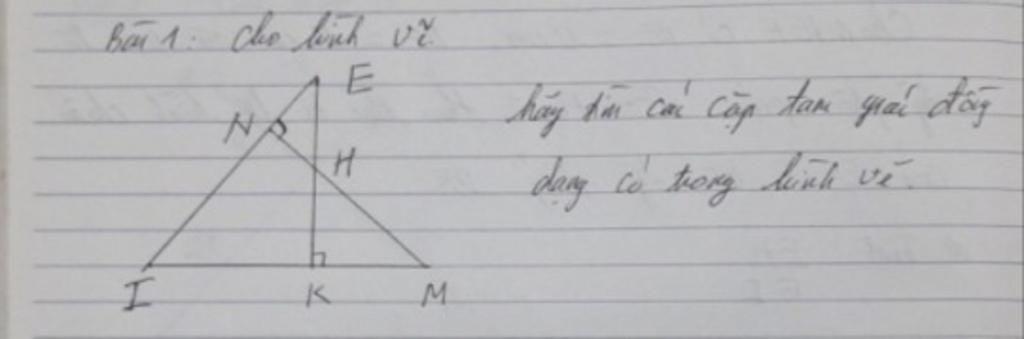 Bài 1: Cho hình vẽ.
hãy tìm các cặp tam giác đồng
dạng có trong hình vẽ.
E
N
H
I K M